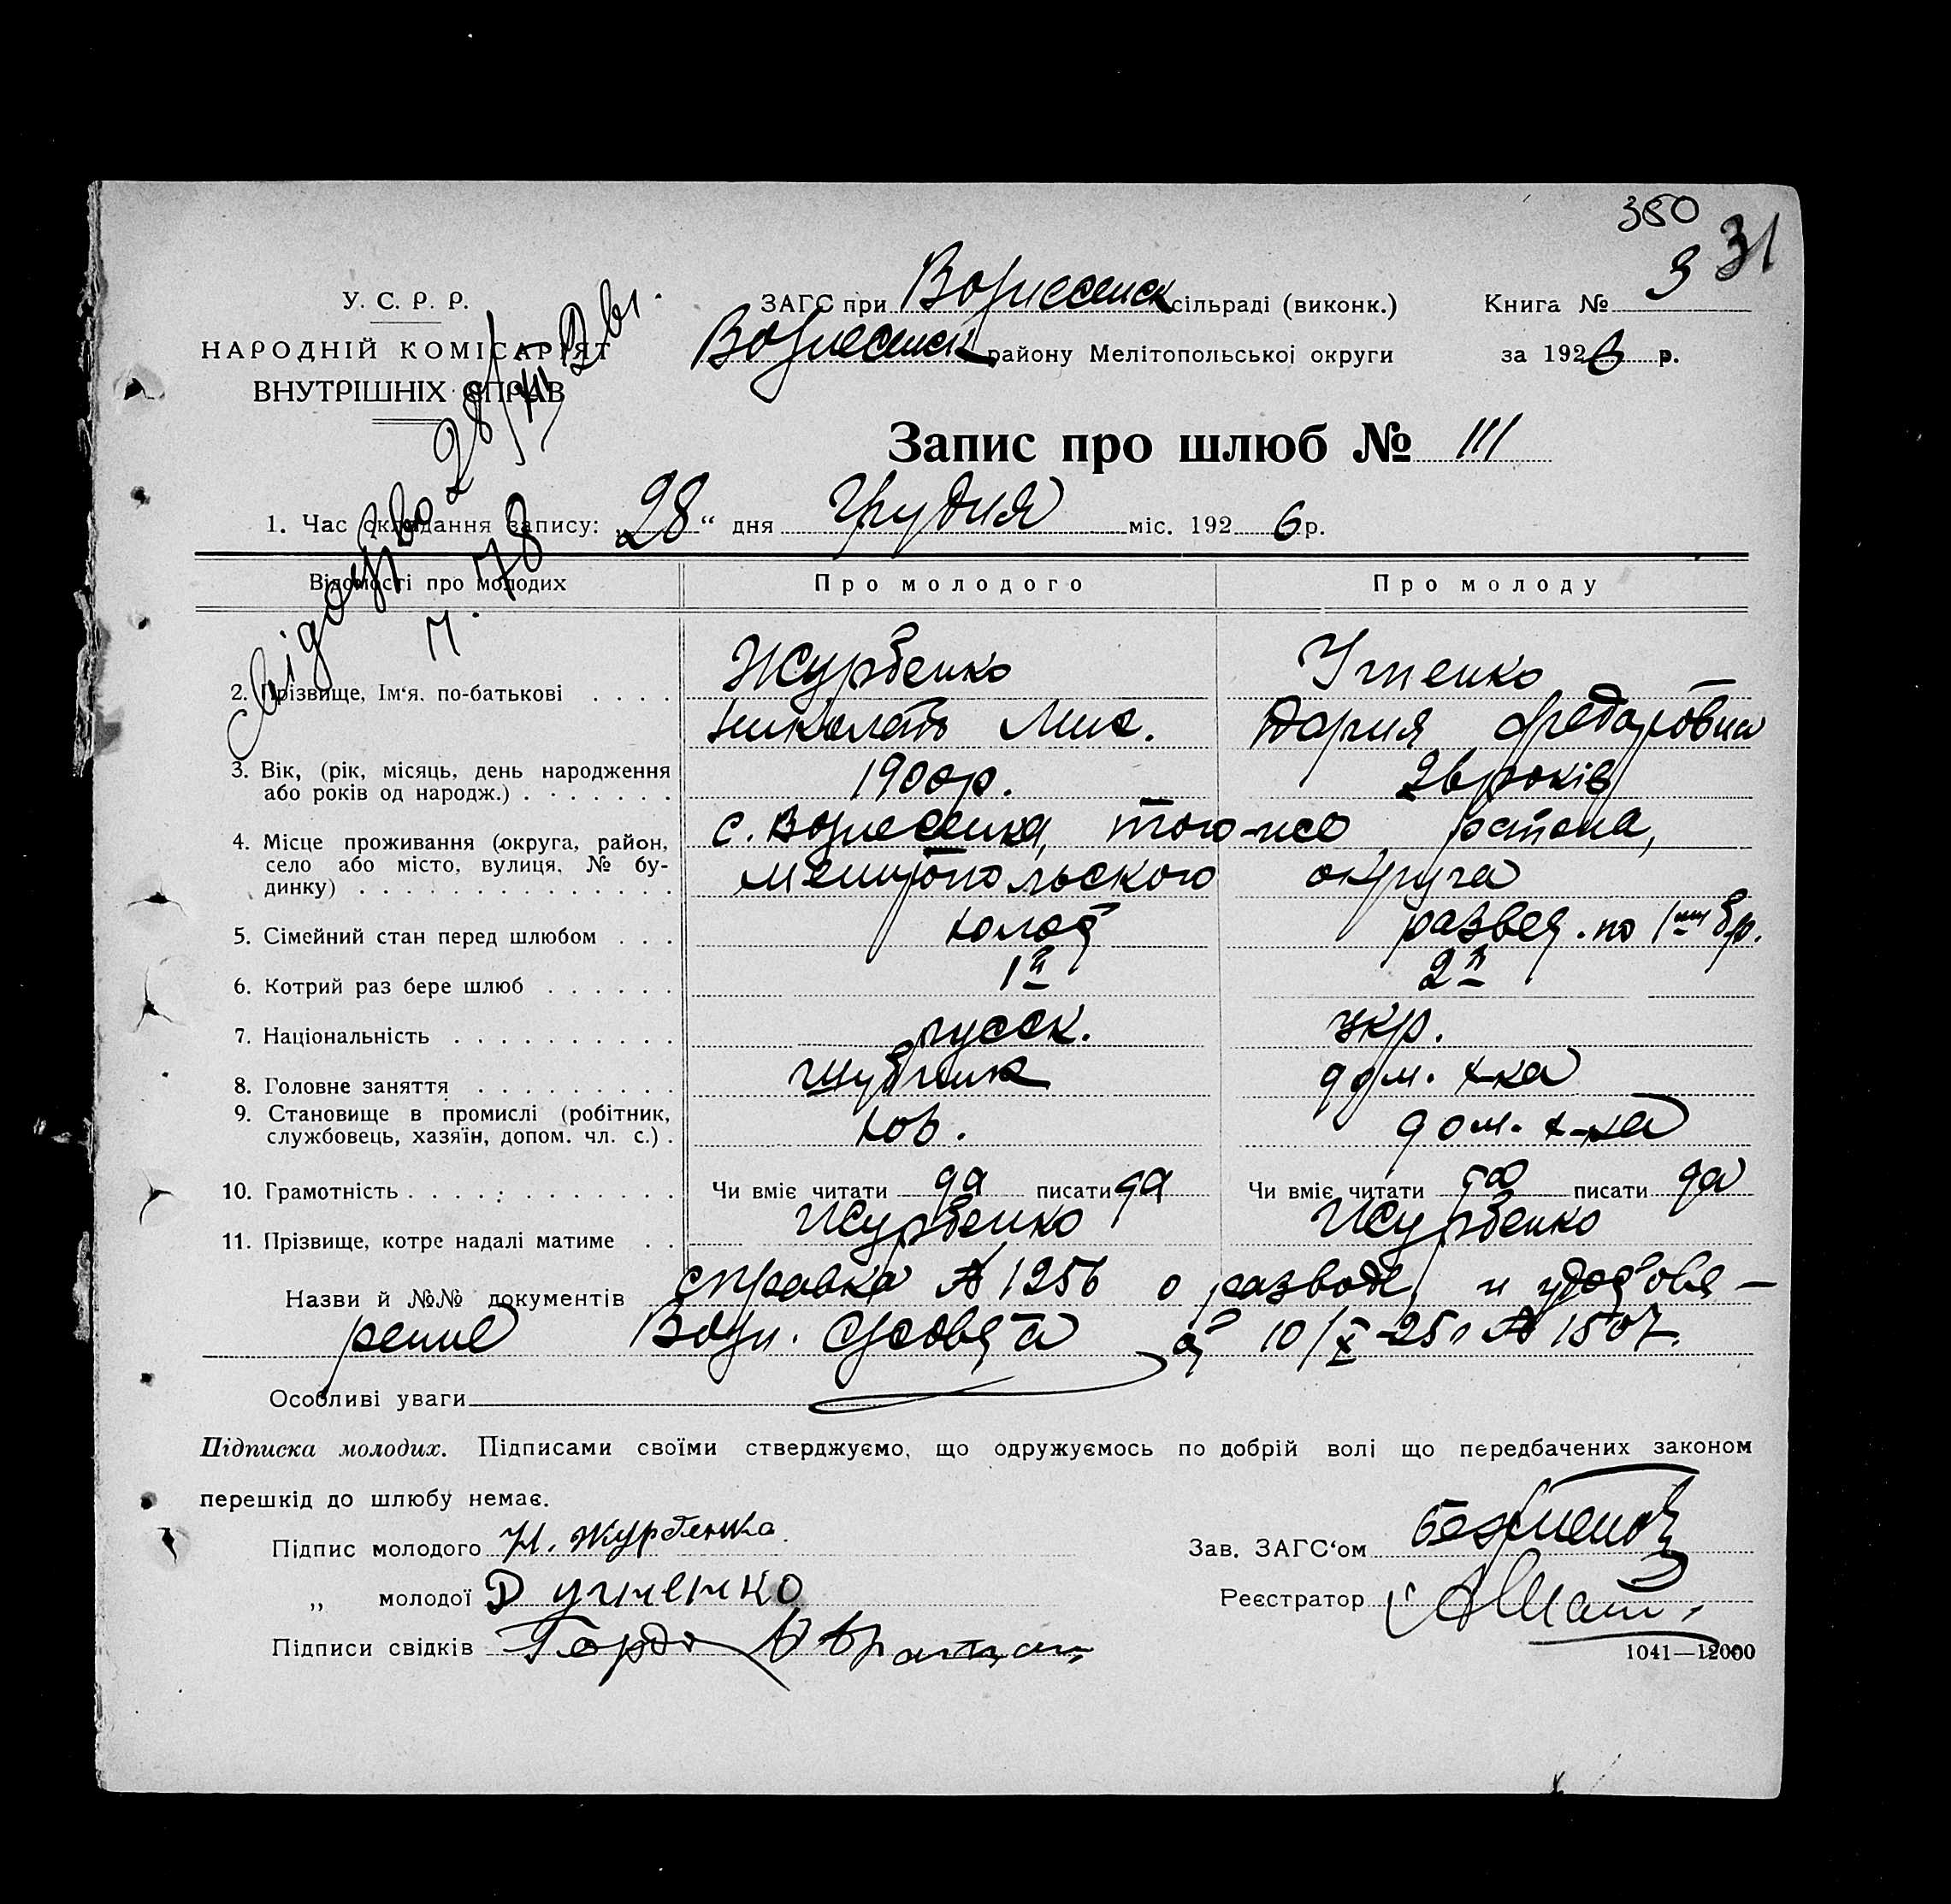 350
31
У. С. Р. Р.
НАРОДНІЙ КОМІСАРІЯТ
ВНУТРІШНІХ СПРАВ
ЗАГС при Вознесенск сільраді (виконк.)
Книга № 3
Вознесенск району Мелітопольської округи
за 1926 р.
Запис про шлюб № 111
1. Час складання запису: „28“ дня Грудня міс. 1926 р.
Відомості про молодих
Про молодого
Про молоду
2. Прізвище, Ім‘я, по-батькові
Журбенко
Утенко
Николай Мих.
Дария Федоровна
3. Вік, (рік, місяць, день народження
або років од народж.)
1900р.
26 років
4. Місце проживання (округа, район,
село або місто, вулиця, № бу-
динку)
с. Вознесенка, того-же района,
мелитопольского округа
5. Сімейний стан перед шлюбом
холост
развед. по 1му бр.
6. Котрий раз бере шлюб
1й
2й
7. Національність
русск.
укр.
8. Головне заняття
дом. х-ка
9. Становище в промислі (робітник,
службовець, хазяїн, допом. чл. с.)
дом. х-ка
10. Грамотність
Чи вміє читати да писати да
Чи вміє читати да писати да
11. Прізвище, котре надалі матиме
Журбенко
Журбенко
Назви й №№ документів справка № 1256 о разводе, и удостове-
рение Возн. с/совета от 10/X-25 № 1507.
Особливі уваги
Підписка молодих. Підписами своїми стверджуємо, що одружуємось по добрій волі що передбачених законом
перешкід до шлюбу немає.
Підпис молодого Н. Журбенко
Зав. ЗАГС‘ом
„ молодої Д Утченко
Реєстратор
Підписи свідків
1041—12000
Свідоцтво 28/XII 26г.
ч. 78